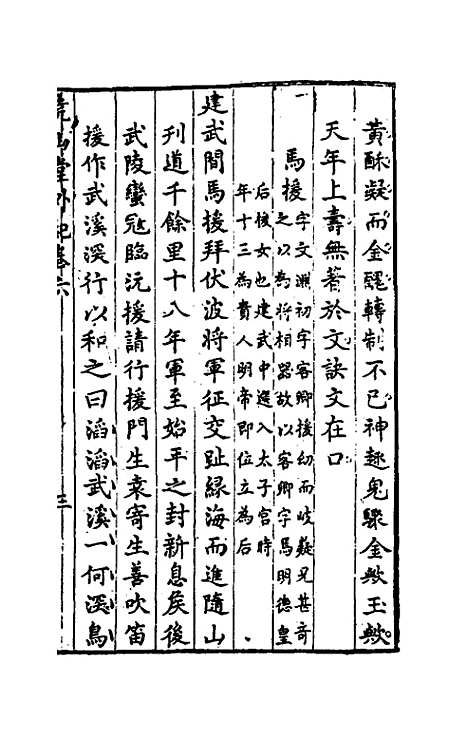 黃酥凝而金醴轉制不已神趣鬼驟金欻玉欻
天年上壽無著於文訣文在口
馬援字文淵初字客卿後幼而歧嶷兄甚奇
之以為將相器故以客卿字焉明德皇
后援女也建武中選入太子宮時
年十三為貴人明帝即位立為后
建武間馬援拜伏波將軍征交趾緣海而進隨山
刋道千餘里十八年軍至始平之封新息矦後
武陵蠻冦臨沅援請行援門生袁寄生善吹笛
援作武溪深行以和之曰滔滔武溪一何深鳥
山堂外紀卷六
三